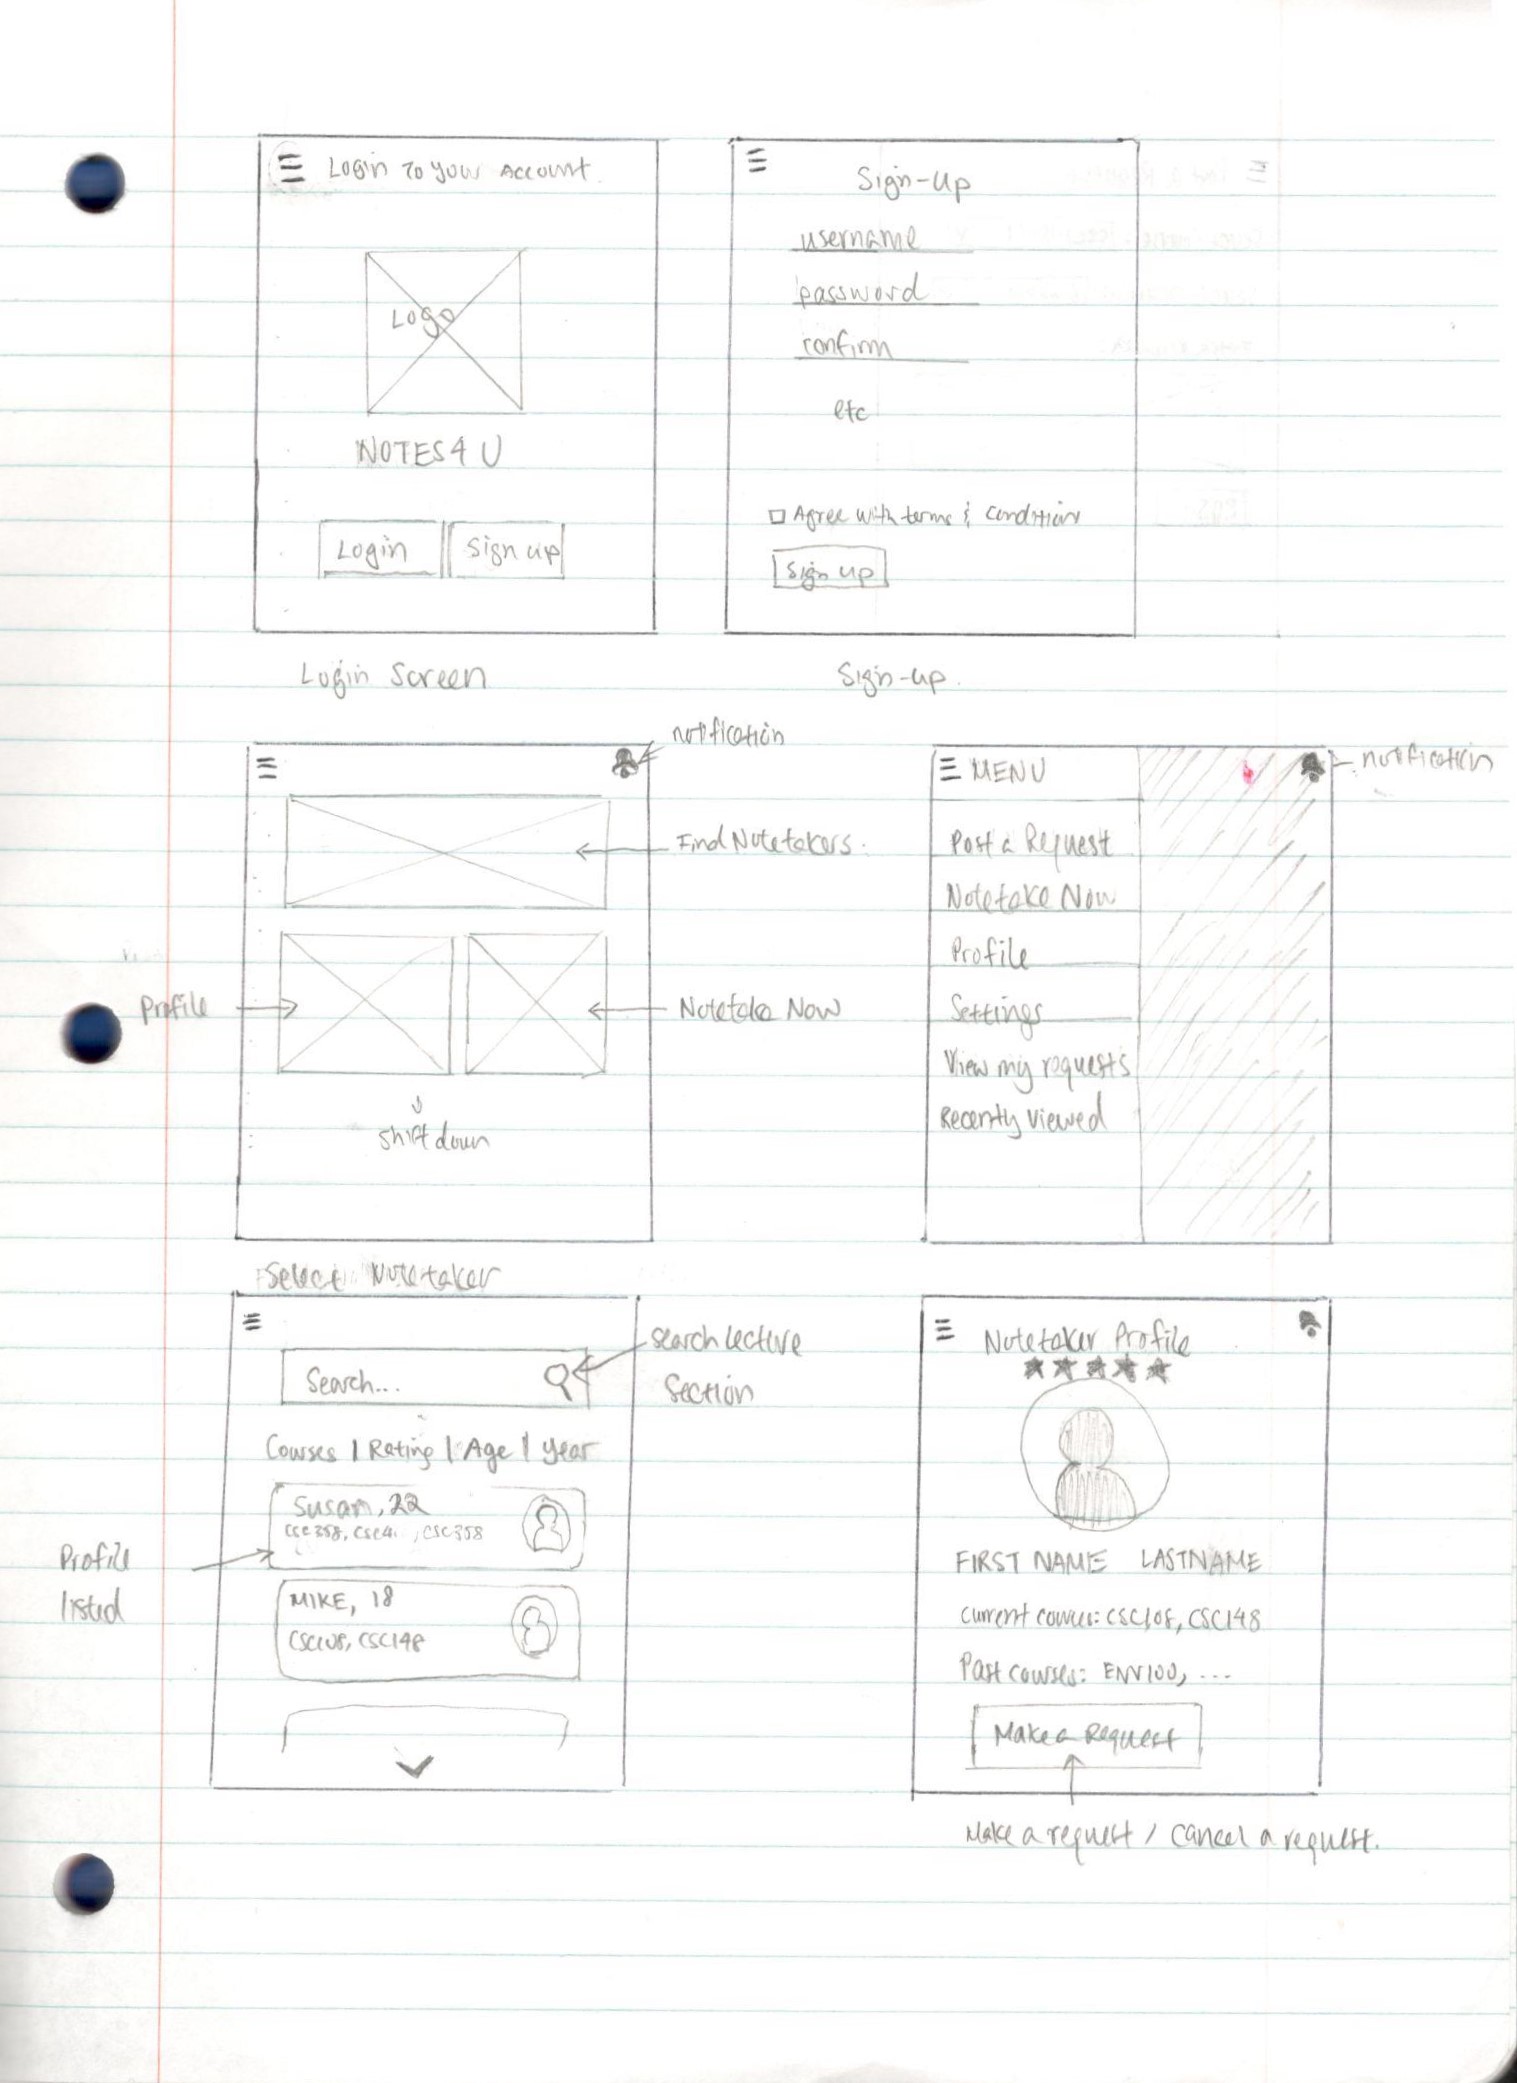 Login To your Account.
Logo
NOTES4 U
Login
Sign up
Login Screen
Sign-up
username
password
confirm
etc
Agree with terms & condition
Sign up
Sign-up.
notification
Find Notetakers.
Profile
Notetake Now
shift down
MENU
notification
Post a Request
Notetake Now
Profile
Settings
View my requests
Recently Viewed
Select Notetaker
Search...
search lective
section
Courses | Rating | Age | year
Susan, 22
CSC358, CSC4 , CSC358
Profile
listed
MIKE, 18
CSC108, CSC148
Notetaker Profile
FIRST NAME LASTNAME
Current courses: CSC108, CSC148
Past courses: ENV100, ...
Make a Request
Make a request / Cancel a request.